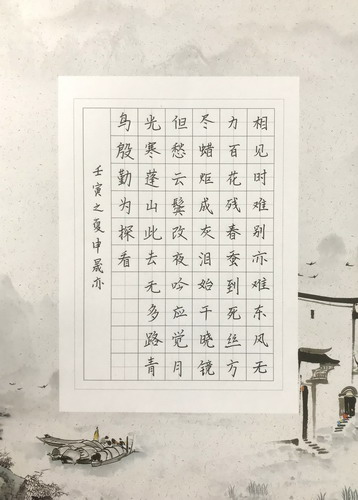 相见时难别亦难东风无
力百花残春蚕到死丝方
尽蜡炬成灰泪始干晓镜
但愁云鬓改夜吟应觉月
光寒蓬山此去无多路青
鸟殷勤为探看
壬寅之夏申晟亦